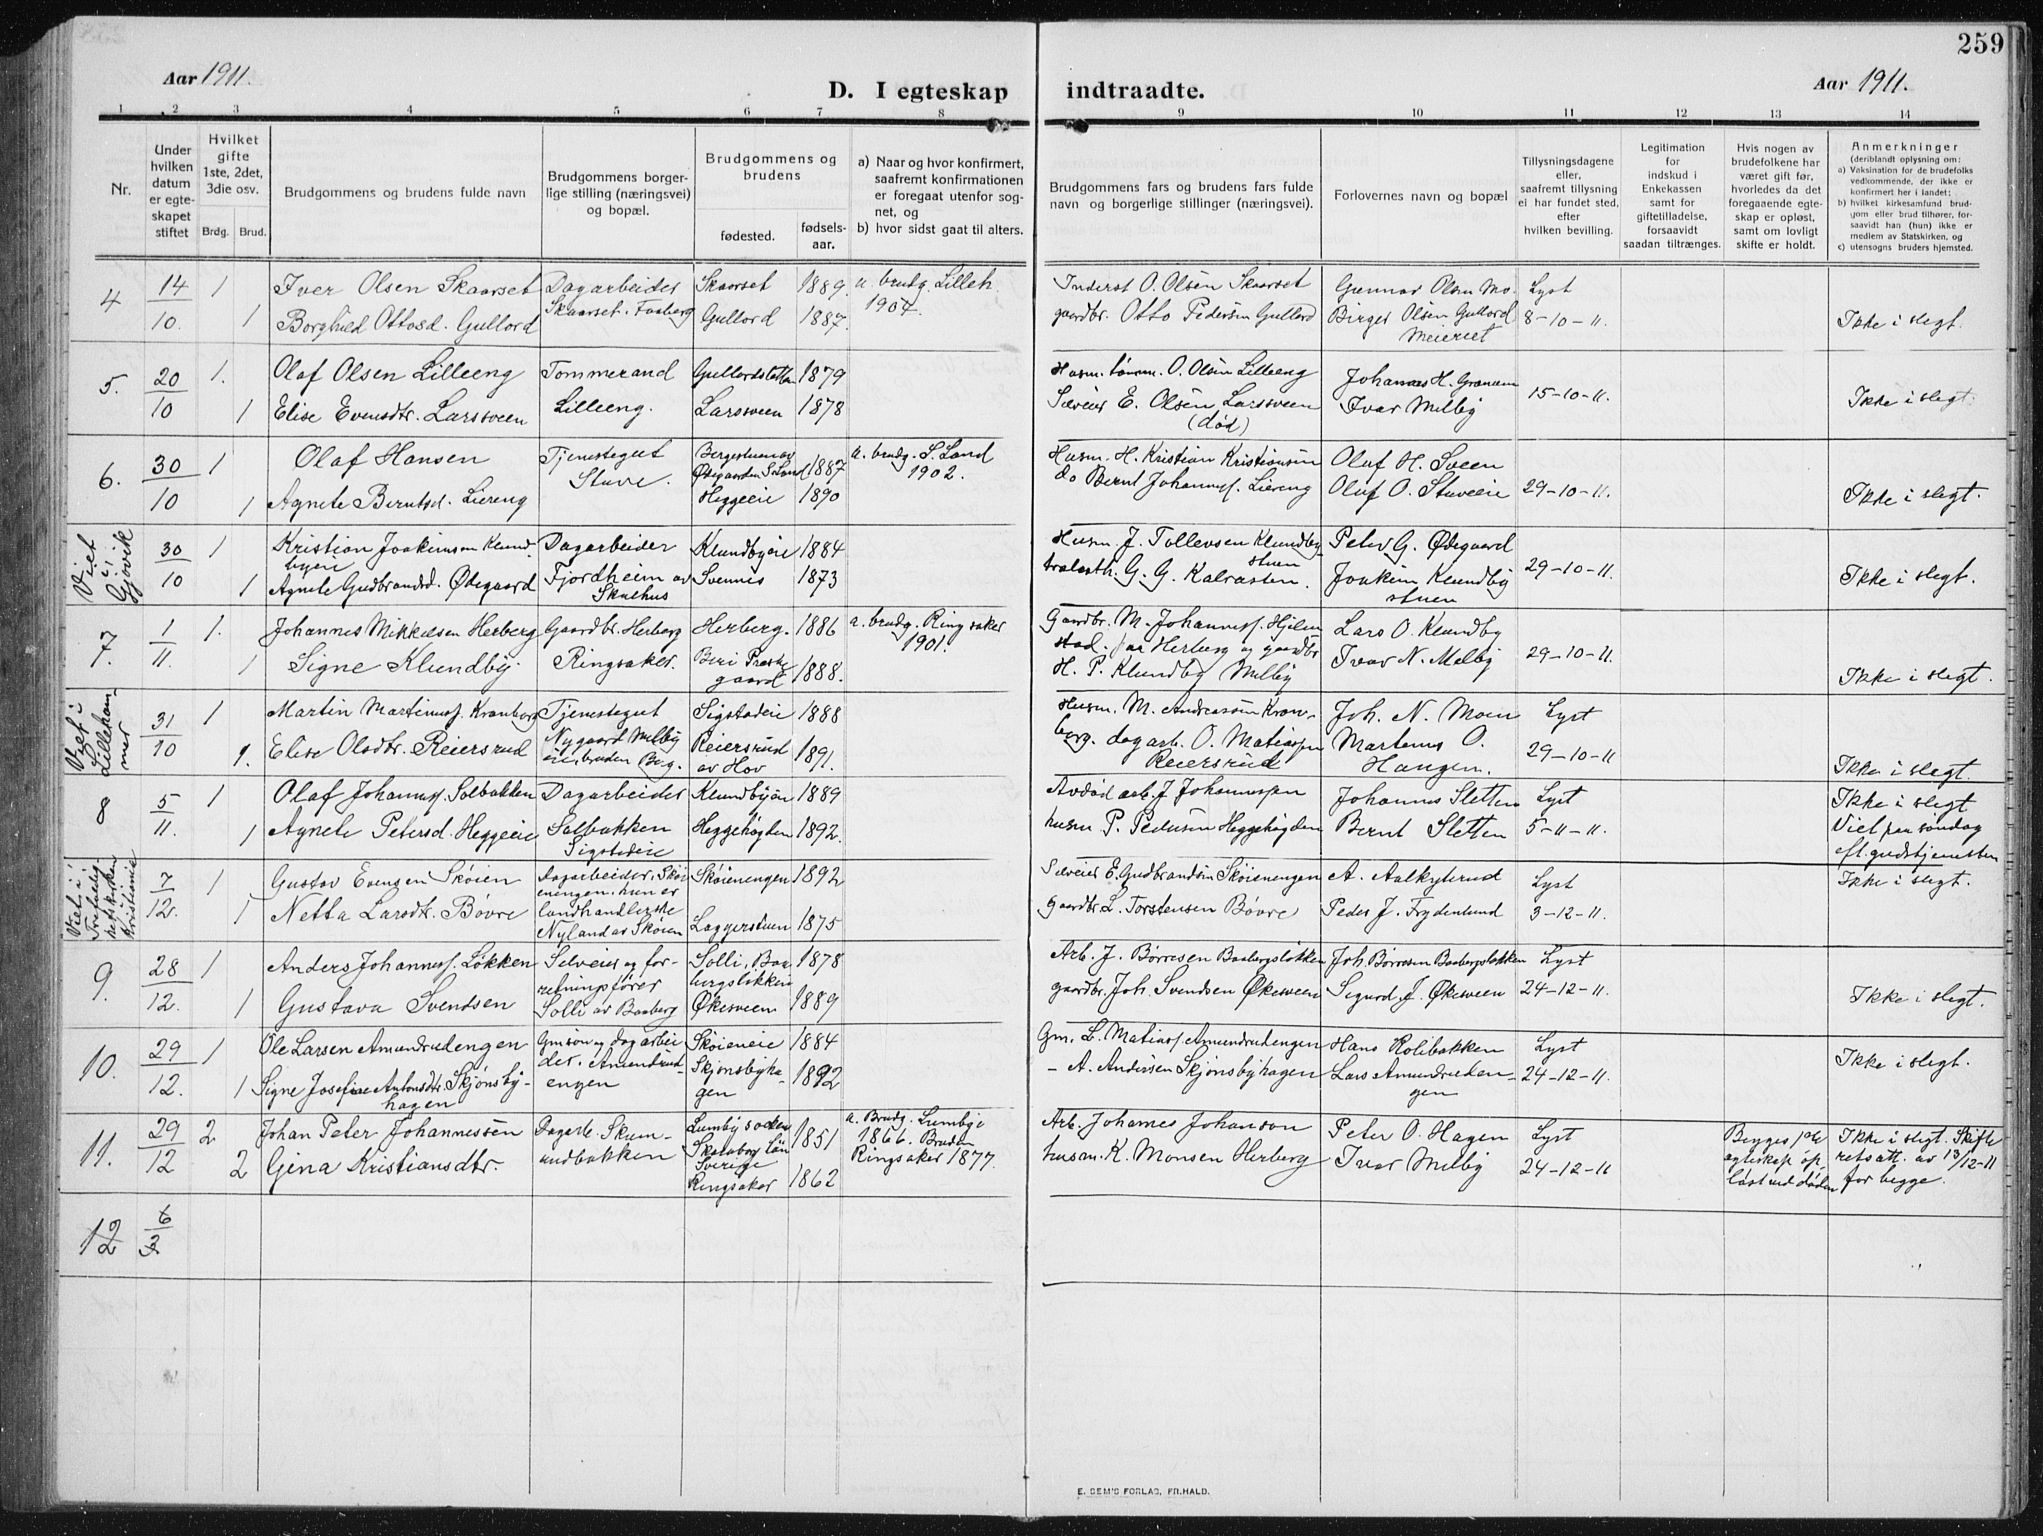 259
Aar 1911.
D. I egteskap indtraadte.
Aar 1911.
1 2 3 4 5 6 7 8 9 10 11 12 13 14
Nr.
Under hvilken datum er egteskapet stiftet
Hvilket gifte 1ste, 2det, 3die osv.
Brdg. Brud.
Brudgommens og brudens fulde navn
Brudgommens borgerlige stilling (næringsvei) og bopæl.
Brudgommens og brudens
fødested.
fødselsaar.
a) Naar og hvor konfirmert, saafremt konfirmationen er foregaat utenfor sognet, og
b) hvor sidst gaat til alters.
Brudgommens fars og brudens fars fulde navn og borgerlige stillinger (næringsvei).
Forlovernes navn og bopæl
Tillysningsdagene eller, saafremt tillysning ei har fundet sted, efter hvilken bevilling.
Legitimation for indskud i Enkekassen samt for giftetilladelse, forsaavidt saadan tiltrænges.
Hvis nogen av brudefolkene har været gift før, hvorledes da det foregaaende egteskap er opløst, samt om lovligt skifte er holdt.
Anmerkninger
(deriblandt oplysning om:
a) Vaksination for de brudefolks vedkommende, der ikke er konfirmert her i landet;
b) hvilket kirkesamfund brudgom eller brud tilhører, forsaavidt han (hun) ikke er medlem av Statskirken, og
c) utensogns bruders hjemsted.
4 14/10. 1 Iver Olsen Skaarset Dagarbeider Skaarset 1889 a. brudg. Lilleh. 1904. Inderst O. Olsen Skaarset Gunnar Olsen Mo Lyst
1 Borghild Ottosd. Gullord Skaarset. Faaberg Gullord 1887. gaardbr. Otto Pedersen Gullord Birger Olsen Gullord Meieriet 8-10-11. Ikke i slegt.
5. 20/10 1. Olaf Olsen Lilleeng Tømmermand Gullordsletten 1879 Husm. tømm. O. Olsen Lilleeng Johannes H. Granum 15-10-11.
1 Elise Evensdtr. Larssveen Lilleeng. Larsveen 1878 Selveier E. Olsen Larssveen (død) Ivar Melby Ikke i slegt.
6. 30/10 1 Olaf Hansen Tjenestegut Bergestuen av Ødegaarden S. Land 1887 a. brudg. S. Land 1902. Husm. H. Kristian Kristiansen Oluf H. Sveen
1 Agnete Berntsd. Liereng Stuve. Heggeeie 1890 do Bernt Johanness. Liereng Oluf O. Stuveeie 29-10-11. Ikke i slegt.
Viet i Gjøvik 30/10 1 Kristian Joakimsen Klundbyeie Dagarbeider Klundbyeie 1884 Husm. J. Tollevsen Klundbystuen Peter G. Ødegaard 29-10-11.
1 Agnete Gudbrandsd. Ødegaard Fjordheim av Skulhus Svennes 1873 G. G. Kalrasten. Joakim Klundbystuen Ikke i slegt.
7. 1/11. 1. Johannes Mikkelsen Herberg Gaardbr. Herberg Herberg. 1886 a. brudg. Ringsaker 1901. Gaardbr. M. Johanness. Hjelmstad. paa Herberg og gaardbr. Lars O. Klundby
1 Signe Klundby. Ringsaker. Biri Prestegaard 1888. H. P. Klundby Melby Ivar N. Melby 29-10-11. Ikke i slegt.
Viet i Lillehammer 31/10 1 Martin Martinuss. Kranborg Tjenestegut Sigstadeie 1888 Husm. M. Andreassen Kranborg. Joh. N. Moen Lyst
1. Elise Olsdtr. Reiersrud Nygaard Melby Reiersrud av Hov 1891. dagarb. O. Matiassen Reiersrud Martenus O. Haugen. 29-10-11 Ikke i slegt.
8 5/11. 1 Olaf Johanness. Solbakken Dagarbeider Klundbyeie 1889 Avdød arb. J. Johannessen Johannes Sletten Lyst Ikke i slegt
1 Agnete Petersd. Heggeeie Solbakken Sigstadeie Heggehøgden 1892. husm P. Pedersen Heggehøgden Bernt Sletten 5-11-11. Viet paa søndag eft. gudstjenesten
Viet i Trefoldighetskirken Kristiania 7/12. 1 Gustav Evensen Skøien Dagarbeider, Skøieningen, hun er Skøieningen 1892 Selveier E. Gudbrandsen Skøieningen A. Aalkyterud Lyst Ikke i slegt.
1 Netta Larsdtr. Bøvre landhandlerske Nyland av Skøien Laggerstuen 1875 Gaardbr. L. Torstensen Bøvre Peder J. Frydenlund 3-12-11.
9. 28/12. 1 Anders Johanness. Løkken Selveier og forretningsfører Solli, Baabergsløkken 1878 Arb. J. Børresen Baabergsløkken Joh. Børresen Baabergsløkken Lyst
1 Gustava Svendsen Solli av Baaberg Økesveen 1889 gaardbr. Joh. Svendsen Økesveen Sigurd J. Økesveen 24-12-11. Ikke i slegt.
10. 29/12. 1 Ole Larsen Amundrudengen Gmsøn og dagarbeider. Amundrudengen Skøieneie 1884 Gm. L. Matiass. Amundrudengen Hans Rolibakken Lyst
1 Signe Josefine Antonsdtr. Skjønsbyhagen Skjønsbyhagen 1892 - A. Andersen Skjønsbyhagen Lars Amundrudengen 24-12-11. Ikke i slegt.
11. 29/12 2 Johan Peter Johannessen Dagarb. Skumsrudbakken Lumby socken Skaraborg län Sverige 1851 a. Brudg. Lumby 1866. Bruden Ringsaker 1877. Arb. Johannes Johanson Peter O. Hagen Lyst
2 Gina Kristiansdtr. Ringsaker 1862 husm. K. Monsen Herberg Ivar Melby 24-12-11 Begges 1ste egteskap opløst ved døden Ikke i slegt. Skifteretsatt. av 13/12-11 for begge.
12 6/3
E. SEM'S FORLAG, FR.HALD.